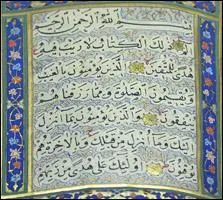 بسم الله الرحمن الرحيم
ذلك الكتاب لا ريب فيه
هدى للمتقين الذين يؤمنون بالغيب
ويقيمون الصلوة ومما رزقناهم
ينفقون والذين يؤمنون بما انزل
اليك وما انزل من قبلك وبالاخرة هم
يوقنون اولئك على هدى من ربهم